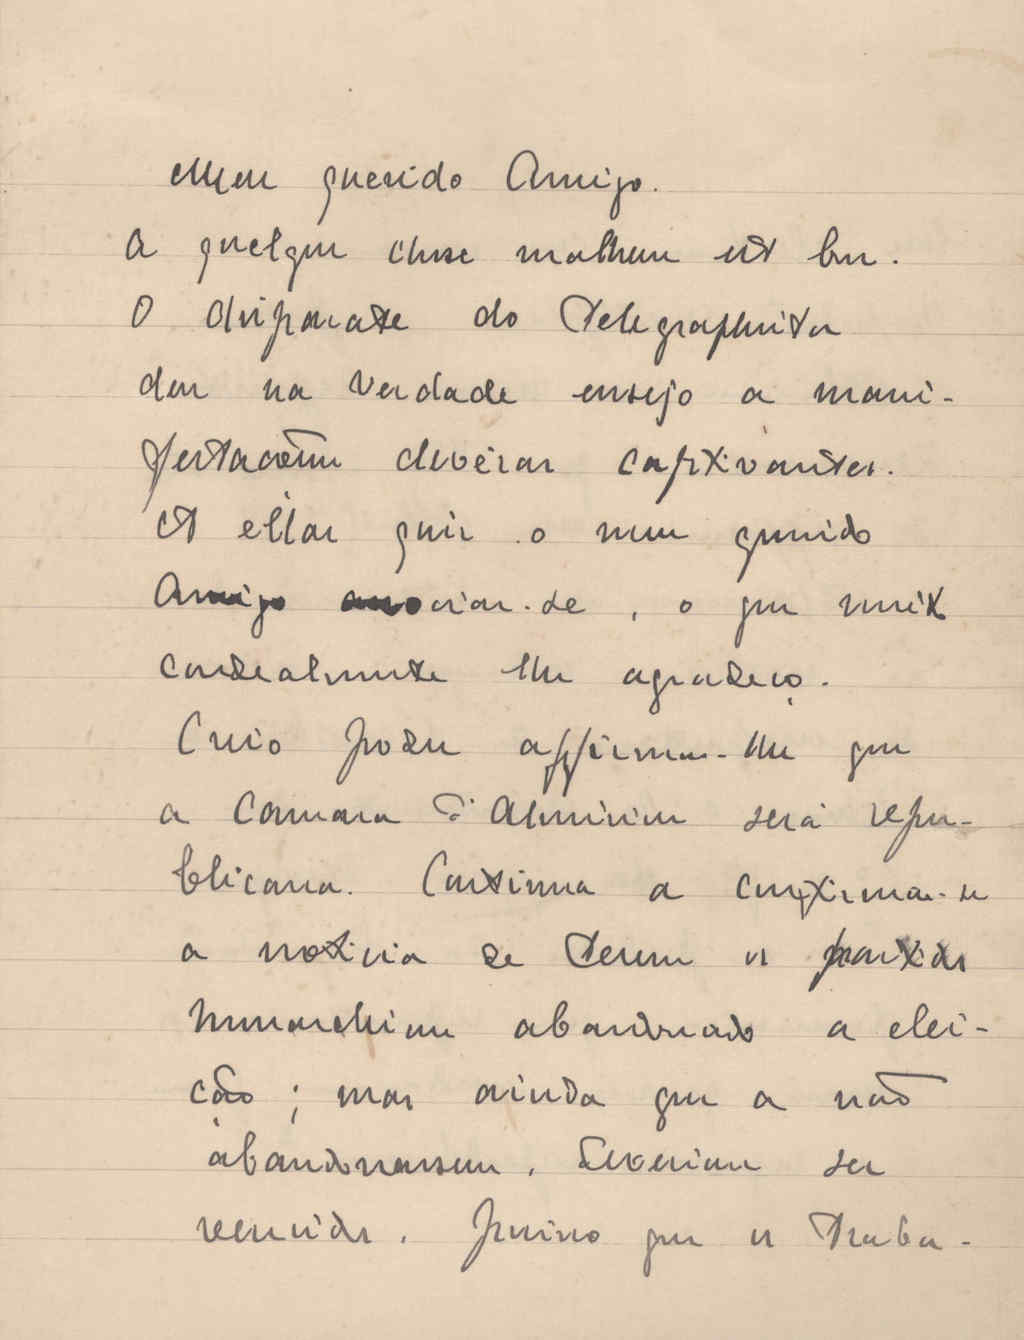 Meu querido Amigo.
A quelque chose malheur est bon.
O disparate do telegraphista
deu na verdade ensejo a mani-
festações deveras captivantes.
A ellas quis o meu querido
Amigo associar-se, o que muito
cordealmente lhe agradeço.
Creio poder affirmar-lhe que
a Camara d'Almeirim será repu-
blicana. Continua a confirmar-se
a noticia de terem os partidos
monarchicos abandonado a elei-
ção; mas ainda que a não
abandonassem, deveriam ser
vencidos. Preciso que os traba-